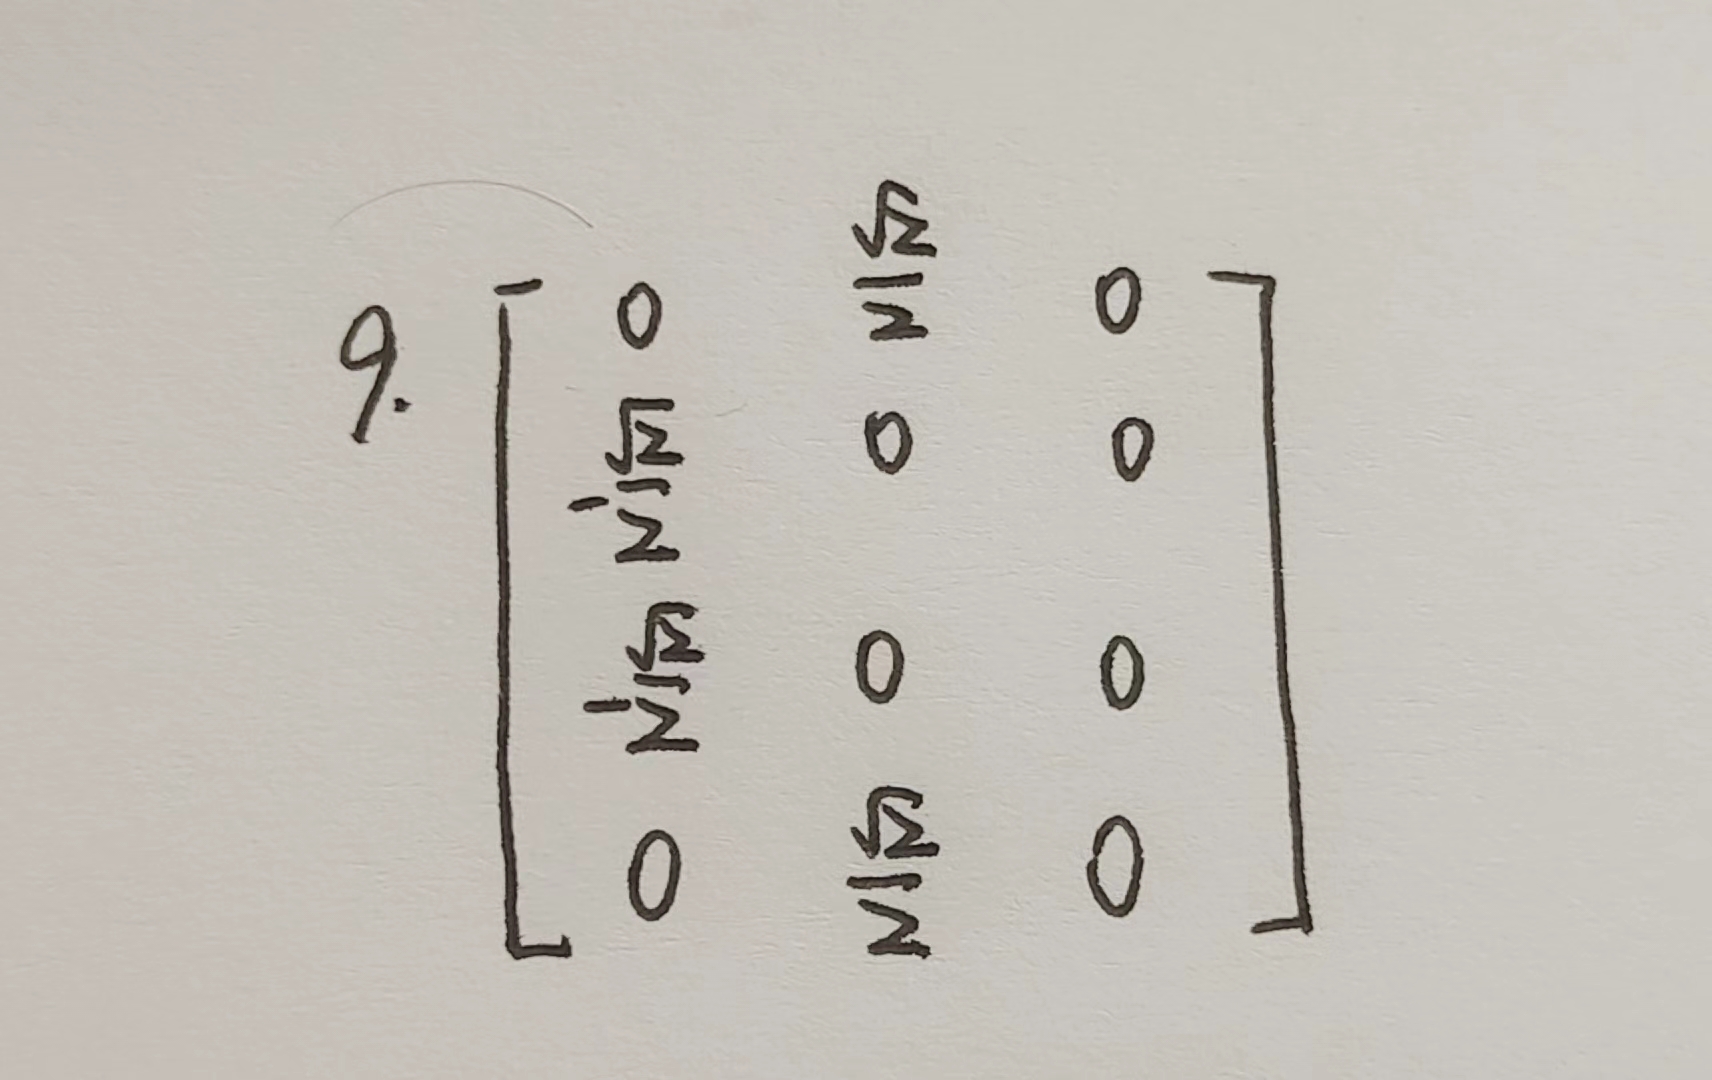 9.
[ 0 √2/2 0 ]
[ -√2/2 0 0 ]
[ -√2/2 0 0 ]
[ 0 √2/2 0 ]